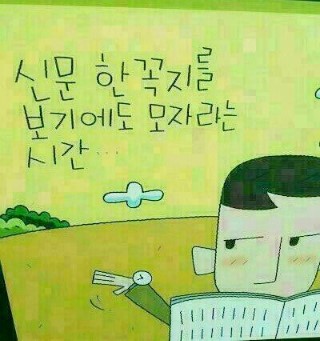 신문 한꼭지를
보기에도 모자라는
시간...